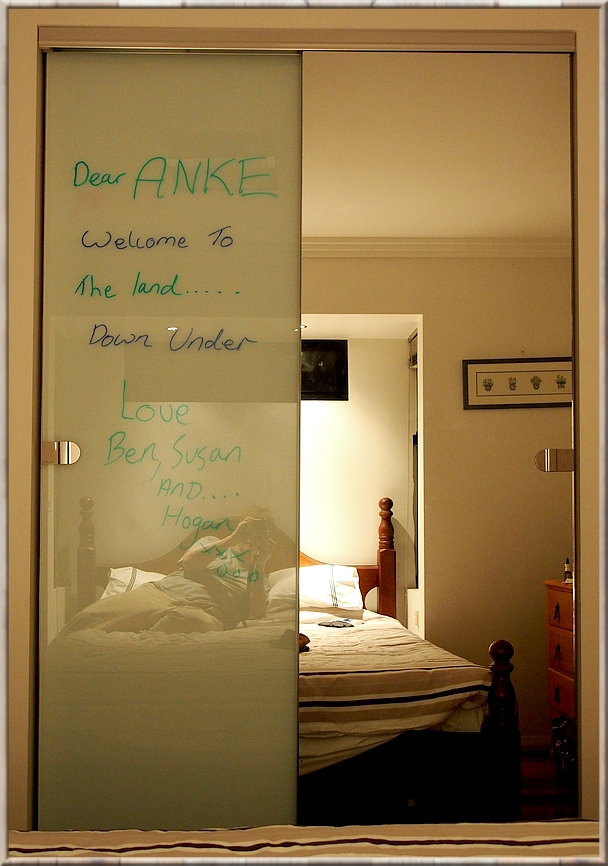 Dear ANKE
Welcome To
The land.....
Down Under
Love
Ben, Susan
AND....
Hogan
xxx
ooo